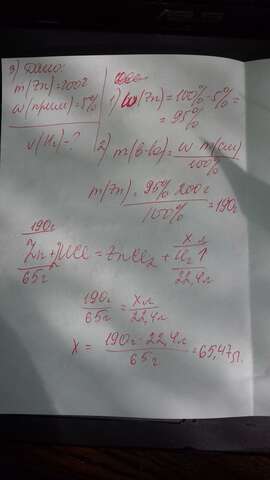 3) Дано:
m(Zn)=200г
w(прим)=5%
v(H₂)=?
1) W(Zn)=100%-5%=
=95%
2) m(в-ва)=w m(см)
100%
m(Zn)=95% 200г
100%
=190г
190г
x л
Zn+2HCl=ZnCl₂+H₂↑
65г
22,4л
190г
65г
=
x л
22,4л
X=
190г·22,4л
65г
=65,47л.